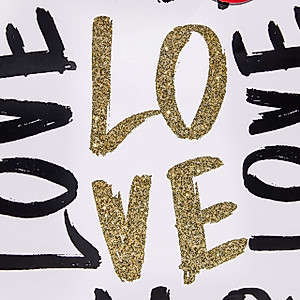 LOVE
LO
VE
LOVE